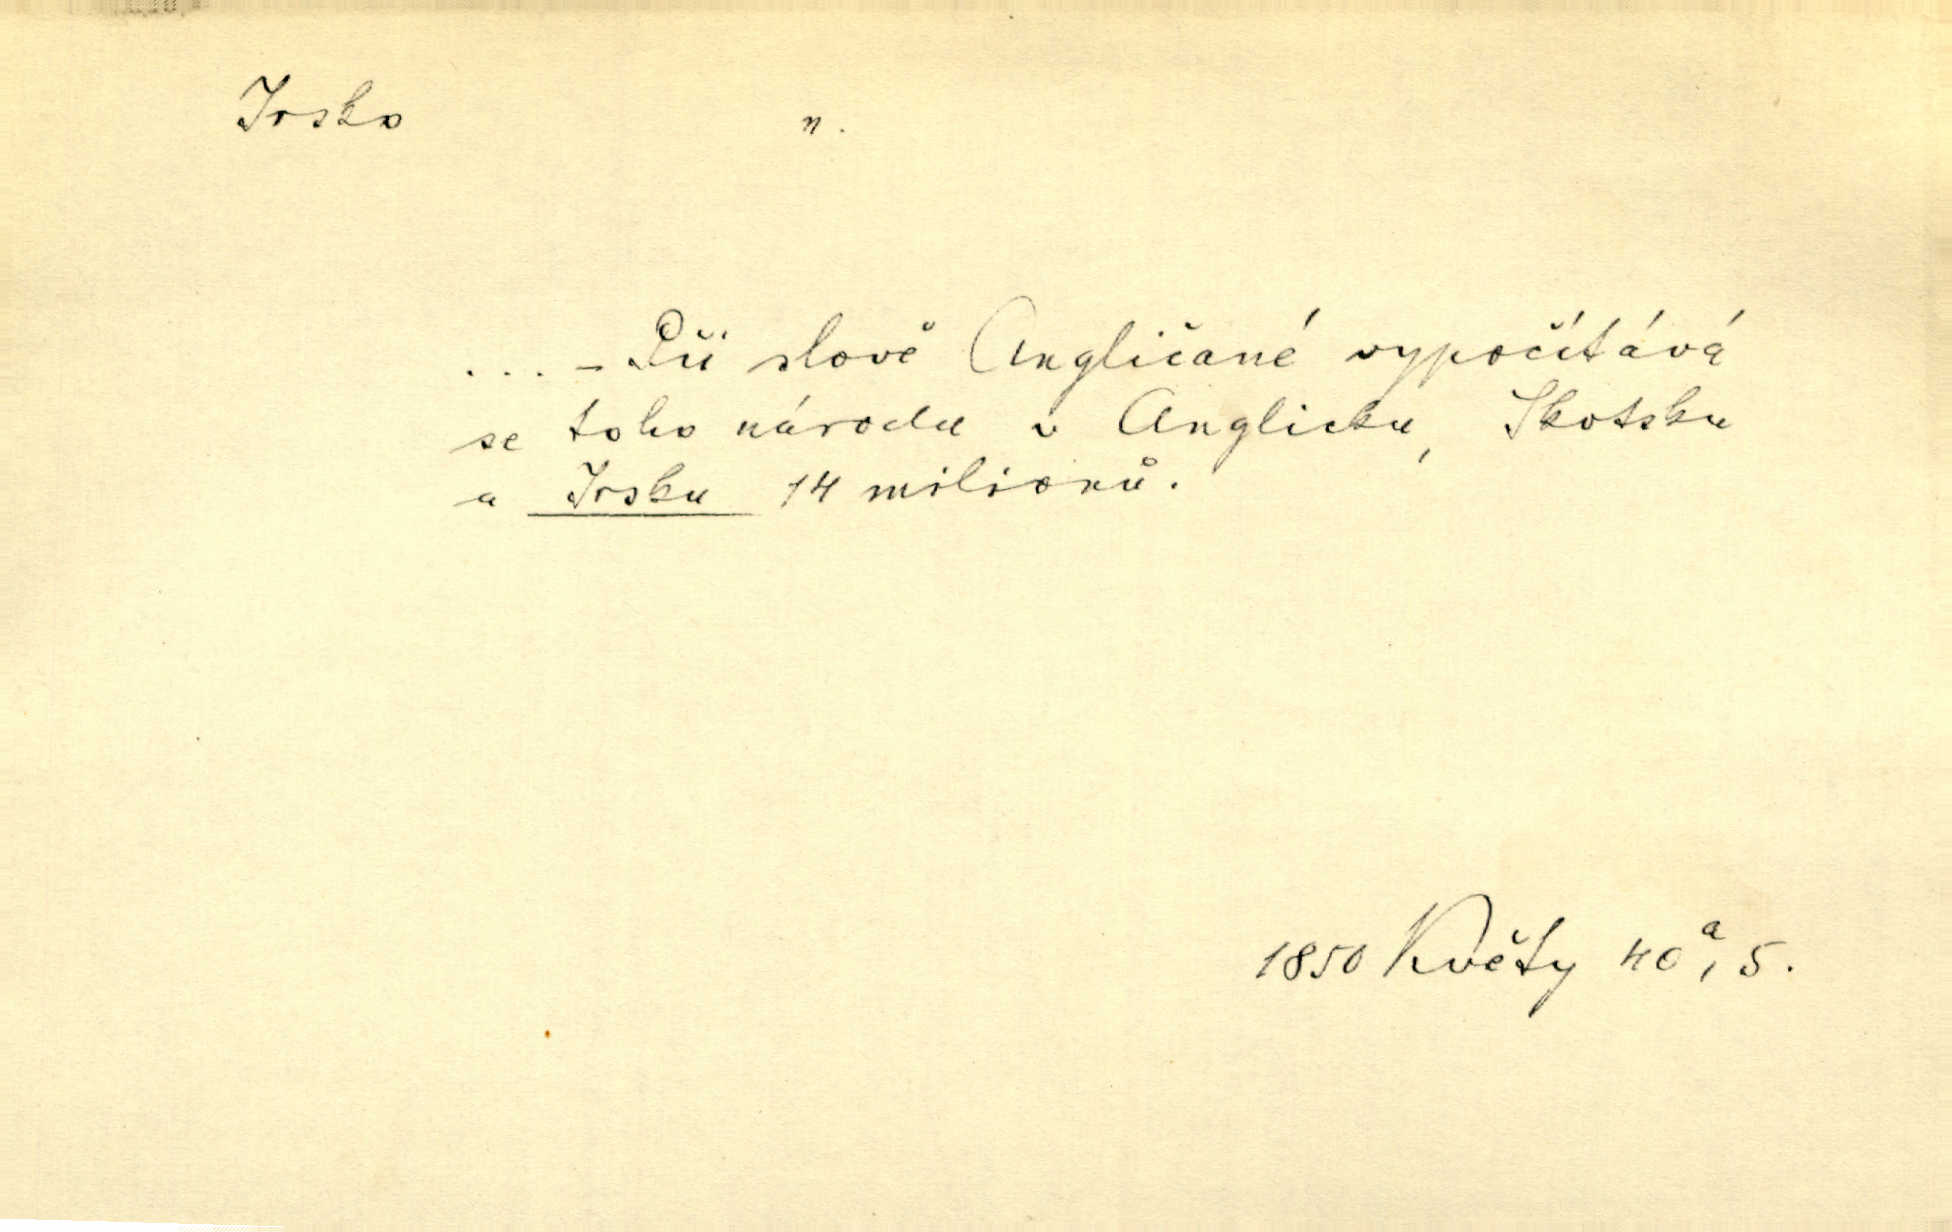 Irsko n.
... – Při slově Angličané vypočítává
se toho národu v Anglicku, Skotsku
a Irsku 14 milionů.
1850 Květy 40a, 5.